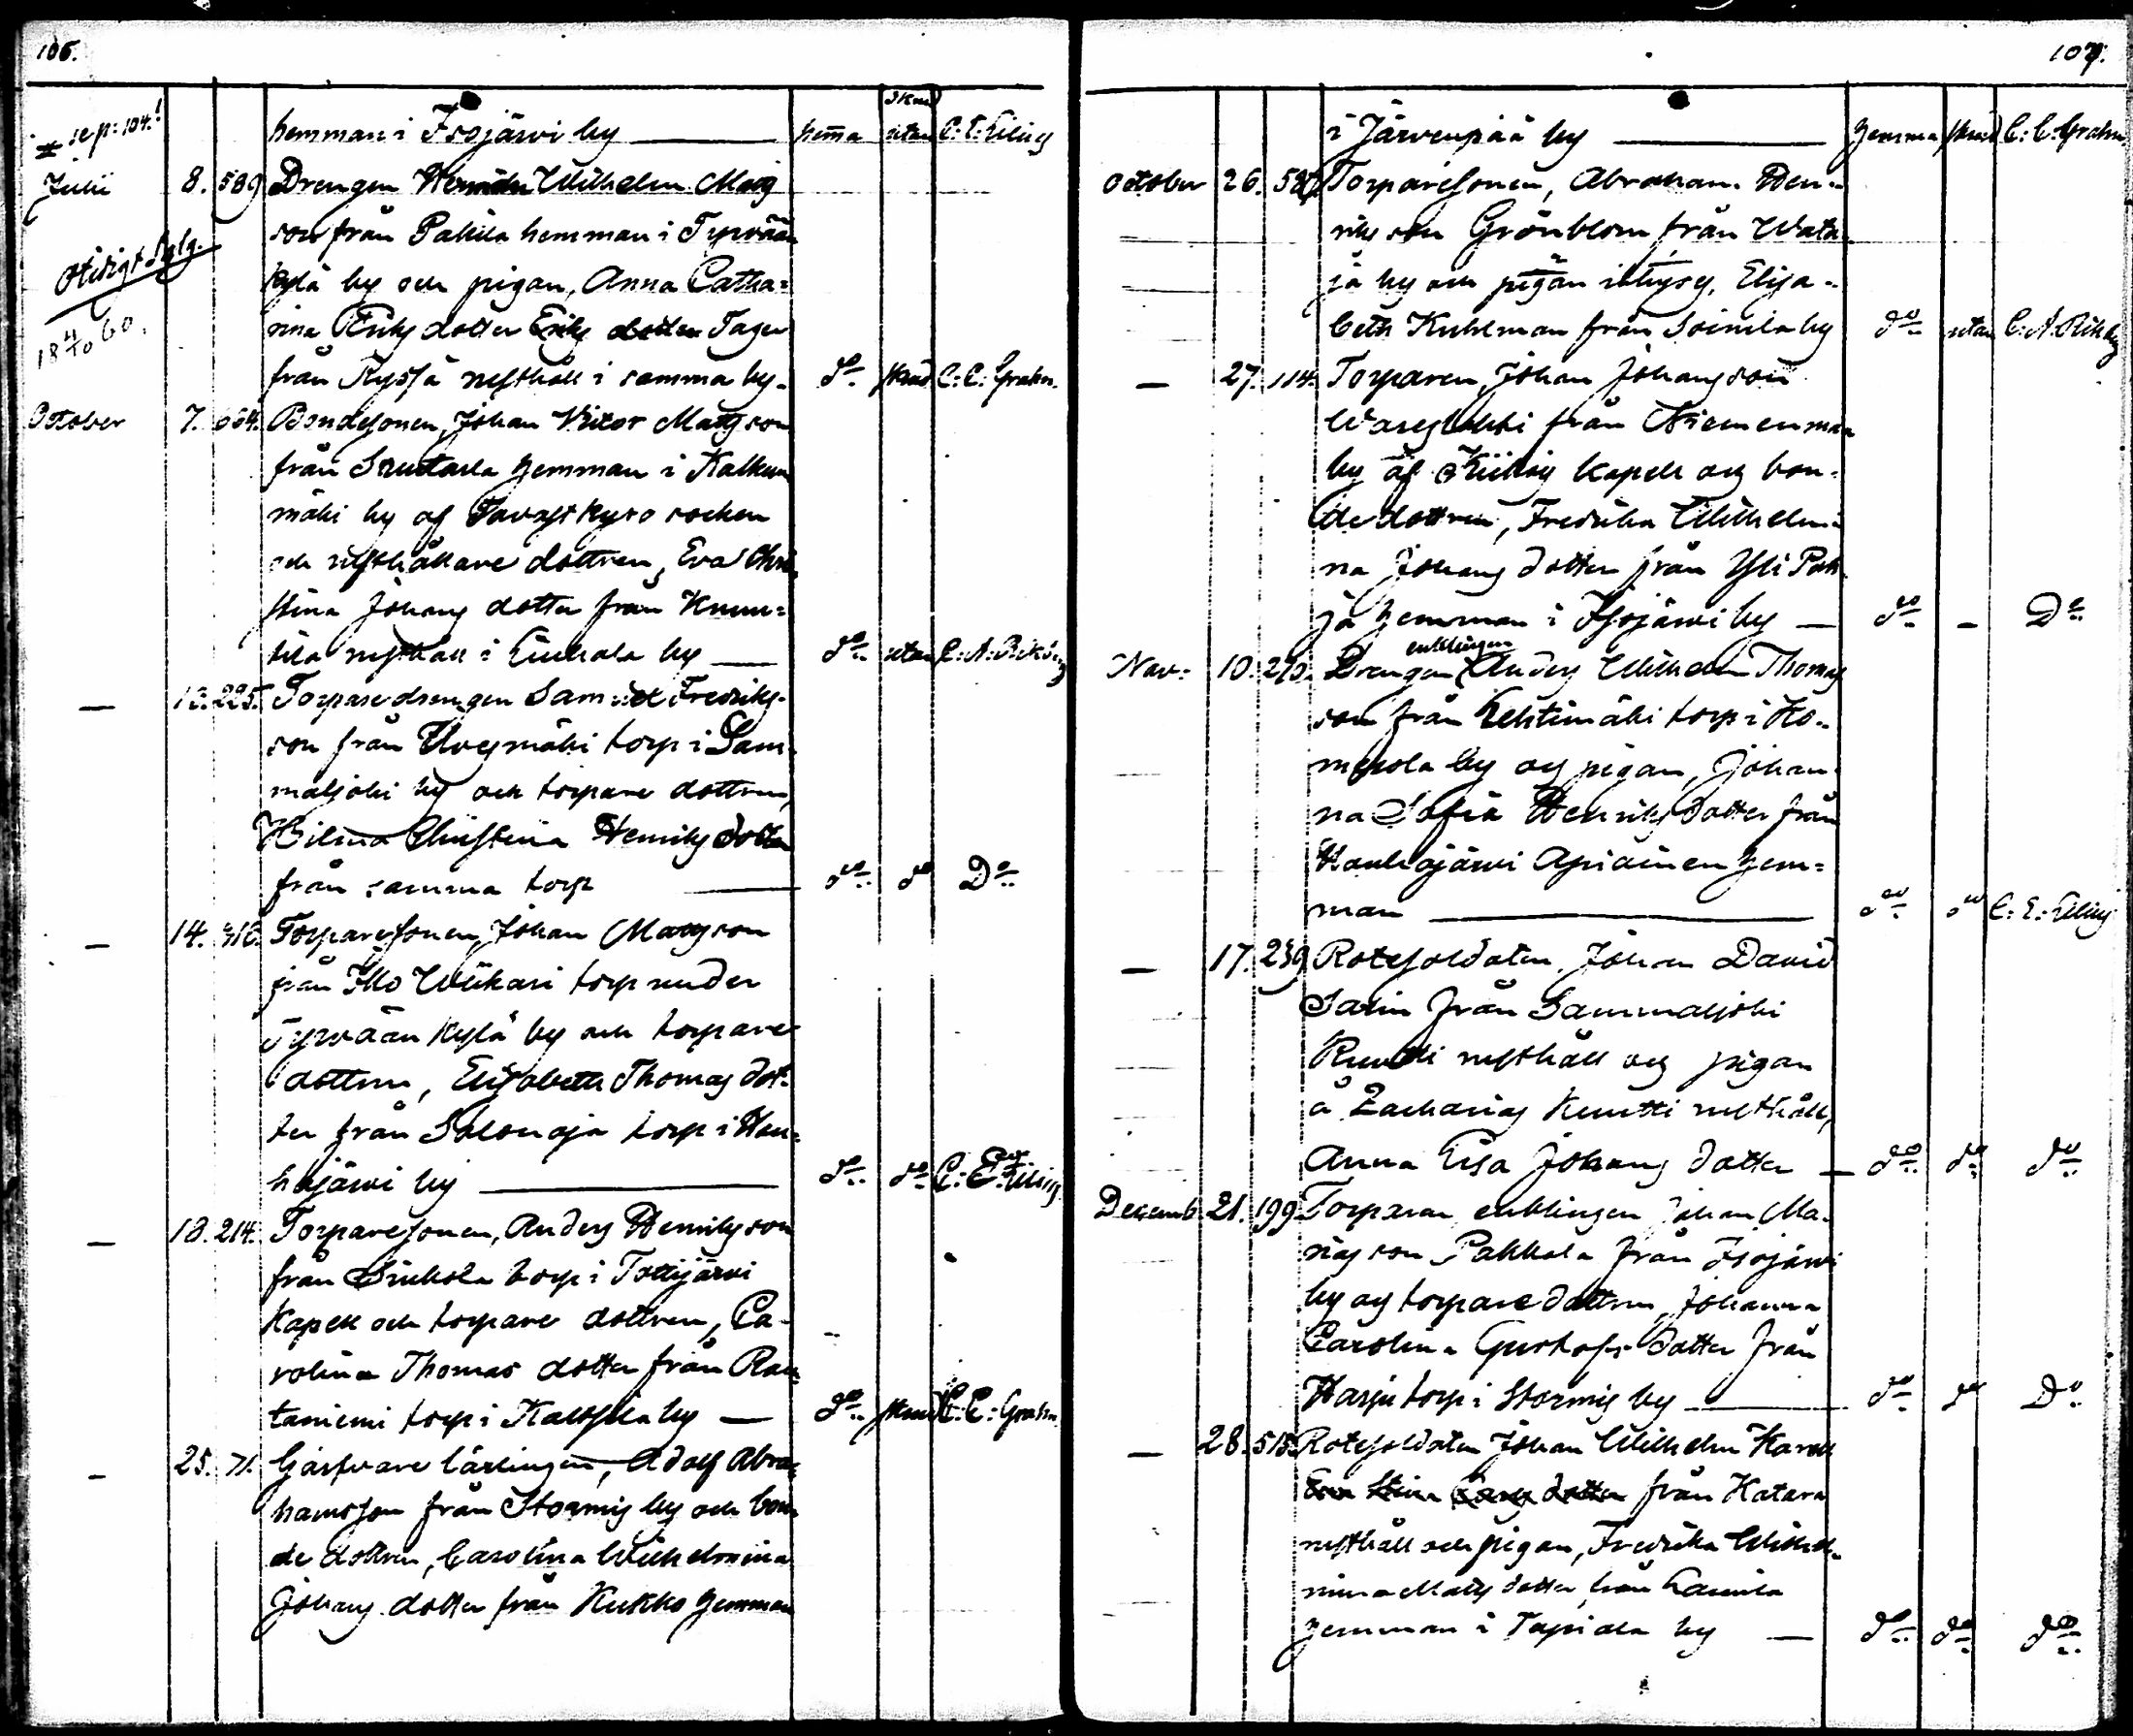 106.
# se p: 104!
hemman i Isojärvi by — hemma Skud utan C: E: Elling
Julii 8. 589 Drengen Wilhelm Mats
son från Pakila hemman i Tyrvään
Otidigt lyst.
kylä by och pigan, Anna Catha=
rina Eriks dotter Eriks dotter Tager
18 4/10 60.
från Ryssä rusthåll i samma by. do skud C: C: Grahn.
October 7. 664. Bondesonen, Johan Victor Matsson
från Suutarla hemman i Kalkun
mäki by af Tavastkyro socken
och rusthållare dottren, Eva Chri
stina Johans dotter från Knuu=
tila rusthåll i Liuhala by — do utan
— 12. 225. Torparedrengen Samuel Fredriks
son från torp i Sam
maljoki by och torpare dottren,
Hilma Christina Henriks dotter
från samma torp — do do Do
— 14. 316. Torparesonen Johan Matsson
från Yllo Wiikari torp under
Tyrvään kylä by och torpare
dottren, Elisabeth Thomas dot=
ter från Salonoja torp i Hou=
hajärvi by — do do C: E: Elling
— 18. 214. Torparesonen, Anders Henriksson
från torp i Tottijärvi
Kapell och torpare dottren, Ca-
rolina Thomas dotter från Rau
taniemi torp i Kaltsila by — do skud C: C: Grahn.
— 25. 71. Garfvare lärlingen, Adolf Abra=
hamsson från Stormis by och bon
de dottren, Carolina Wilhelmina
Johans dotter från Kukko hemman
107.
i Järvenpää by — hemma skud C: C: Grahn
October 26. Torparesonen, Abraham Hen=
riks son Grönblom från Wata
ja by och pigan Elisa=
beth Kuhlman från Soinila by do utan
— 27. 114. Torparen, Johan Johansson
från Niemenmaa
by af Kiikais Kapell och bon=
de dottren, Fredrika Wilhelmi
na Johans dotter från Yli Pah
ja hemman i Isojärvi by — do - Do
Nov: 10. 270. Drengen enklingen Anders Wilhelm Thomas
son från Lehtimäki torp i Ko=
by och pigan, Johan
na Sofia Henriks dotter från
Houhajärvi Apiainen hem=
man — do do C: E: Elling
— 17. 239 Rotesoldaten, Johan David
Salin från Sammaljoki
rusthåll och pigan
å Zacharias Knutti rusthåll,
Anna Lisa Johans dotter — do do do
Decemb. 21. 199 Torparen enklingen Johan Ma=
thias son Pakkala från Isojärvi
by och torpare dottren, Johanna
Carolina Gustafs dotter från
Harju torp i Stormis by — do do Do
— 28. 518. Rotesoldaten Johan Wilhelm Karell
Eva Stina dotter från Katara
rusthåll och pigan, Fredrika Wilhel=
mina Mats dotter från Laurila
hemman i Tapiola by — do do do